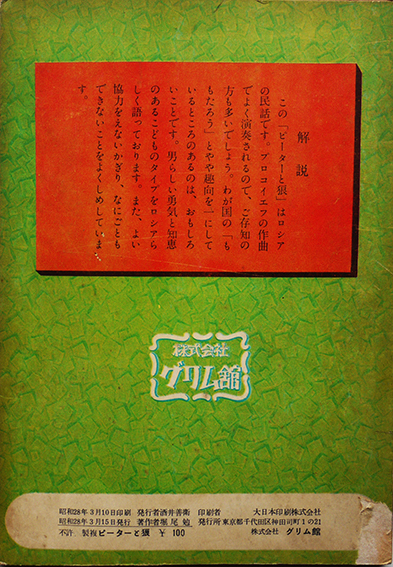 解説
この「ピーターと狼」はロシア
の民話です。プロコイエフの作曲
でよく演奏されるので、ご存知の
方も多いでしょう。わが国の「も
もたろう」とやや趣向を一にして
いるところのあるのは、おもしろ
いことです。男らしい勇気と知恵
のあるこどものタイプをロシアら
しく語っております。また、よい
協力をえないかぎり、なにごとも
できないことをよくしめしていま
す。
株式会社
グリム館
昭和28年3月10日印刷 発行者酒井善衛 印刷者 大日本印刷株式会社
昭和28年3月15日発行 著作者堀尾勉 発行所 東京都千代田区神田司町1の21
不許複製 ピーターと狼 ¥100 株式会社 グリム館